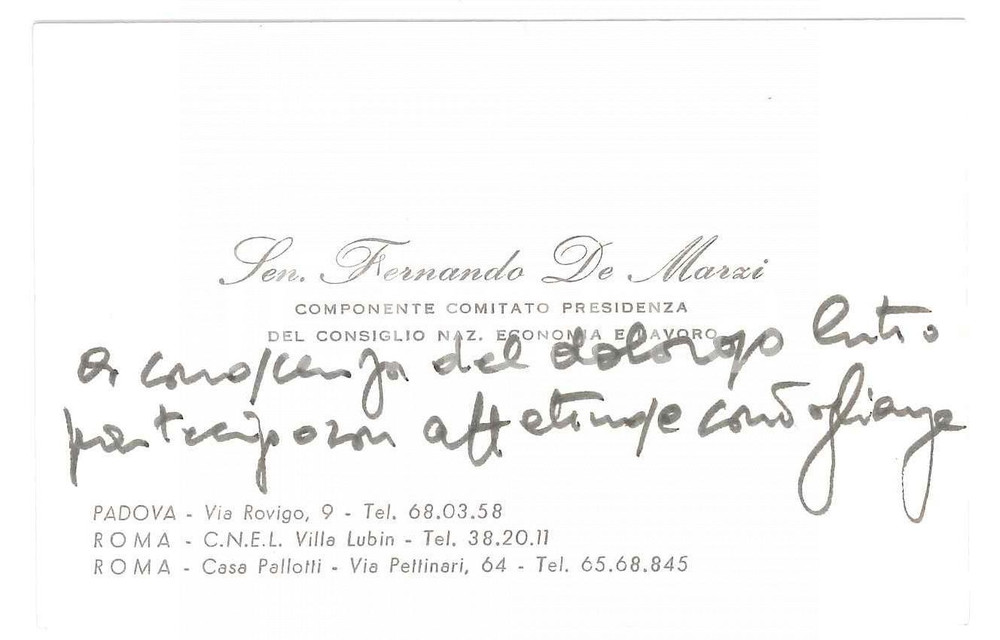 Sen. Fernando De Marzi
COMPONENTE COMITATO PRESIDENZA
DEL CONSIGLIO NAZ. ECONOMIA E LAVORO
a conoscenza del doloroso lutto
affettuose condoglianze
PADOVA - Via Rovigo, 9 - Tel. 68.03.58
ROMA - C.N.E.L. Villa Lubin - Tel. 38.20.11
ROMA - Casa Pallotti - Via Pettinari, 64 - Tel. 65.68.845